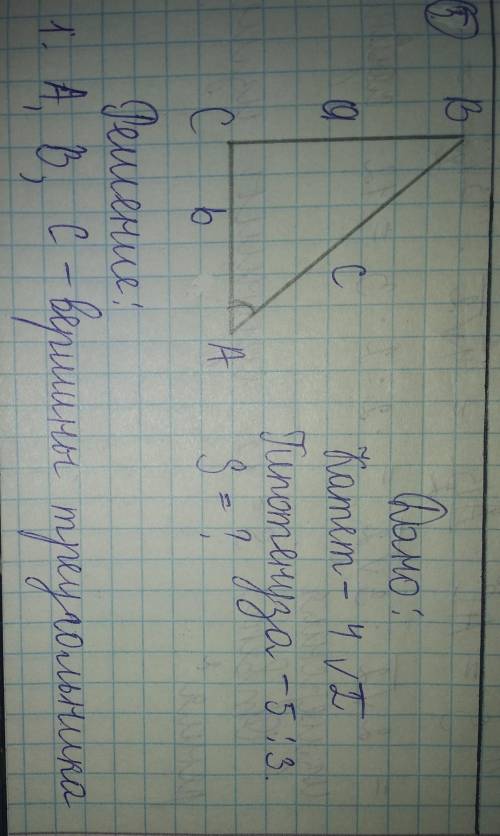 5
B
a
c
C
b
A
Дано:
Катет - 4 √I
Гипотенуза - 5 : 3.
S = ?
Решение:
1. A, B, C - вершины треугольника